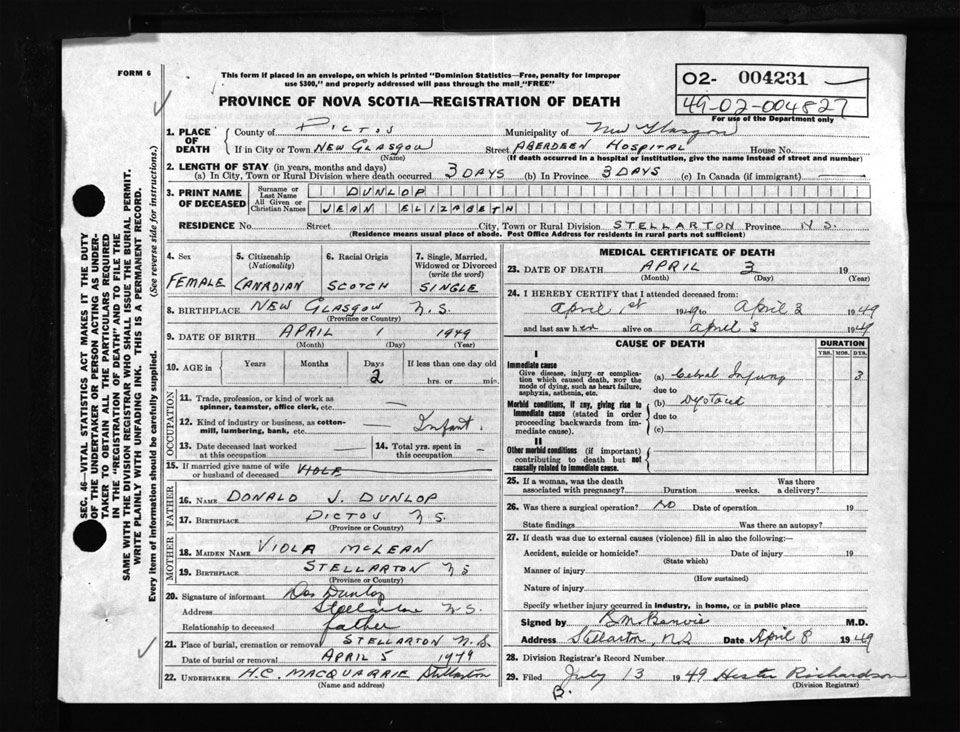 FORM 6
This form if placed in an envelope, on which is printed "Dominion Statistics—Free, penalty for improper
use $300," and properly addressed will pass through the mail "FREE"
02- 004231
49-02-004827
For use of the Department only
PROVINCE OF NOVA SCOTIA—REGISTRATION OF DEATH
1. PLACE OF DEATH County of Pictou Municipality of New Glasgow
If in City or Town NEW GLASGOW Street ABERDEEN HOSPITAL House No.
(Name) (If death occurred in a hospital or institution, give the name instead of street and number)
2. LENGTH OF STAY (in years, months and days)
(a) In City, Town or Rural Division where death occurred 3 DAYS (b) In Province 3 DAYS (c) In Canada (if immigrant)
3. PRINT NAME OF DECEASED Surname or Last Name DUNLOP
All Given or Christian Names JEAN ELIZABETH
RESIDENCE No. Street City, Town or Rural Division STELLARTON Province N.S.
(Residence means usual place of abode. Post Office Address for residents in rural parts not sufficient)
4. Sex FEMALE
5. Citizenship (Nationality) CANADIAN
6. Racial Origin SCOTCH
7. Single, Married, Widowed or Divorced (write the word) SINGLE
8. BIRTHPLACE NEW GLASGOW N.S.
(Province or Country)
9. DATE OF BIRTH APRIL 1 1949
(Month) (Day) (Year)
10. AGE in Years Months Days 2 If less than one day old hrs. or min.
OCCUPATION
11. Trade, profession, or kind of work as spinner, teamster, office clerk, etc.
12. Kind of industry or business, as cotton-mill, lumbering, bank, etc. Infant.
13. Date deceased last worked at this occupation
14. Total yrs. spent in this occupation
15. If married give name of wife or husband of deceased
FATHER
16. NAME DONALD J. DUNLOP
17. BIRTHPLACE PICTOU N.S.
(Province or Country)
MOTHER
18. MAIDEN NAME VIOLA McLEAN
19. BIRTHPLACE STELLARTON N S
(Province or Country)
20. Signature of informant Don Dunlop
Address Stellarton N.S.
Relationship to deceased father
21. Place of burial, cremation or removal STELLARTON N.S.
Date of burial or removal APRIL 5 1949
22. UNDERTAKER H.C. MACQUARRIE Stellarton
(Name and address)
MEDICAL CERTIFICATE OF DEATH
23. DATE OF DEATH APRIL 3 19
(Month) (Day) (Year)
24. I HEREBY CERTIFY that I attended deceased from:
April 1st 1949 to April 3 1949
and last saw her alive on April 3 1949
CAUSE OF DEATH DURATION
YRS. MOS. DYS.
I
Immediate cause
Give disease, injury or complication which caused death, NOT the mode of dying, such as heart failure, asphyxia, asthenia, etc.
(a) Injury 3
due to
Morbid conditions, if any, giving rise to immediate cause (stated in order proceeding backwards from immediate cause).
(b)
due to
(c)
II
Other morbid conditions (if important) contributing to death but not causally related to immediate cause.
25. If a woman, was the death associated with pregnancy? Duration weeks. Was there a delivery?
26. Was there a surgical operation? NO Date of operation 19
State findings Was there an autopsy?
27. If death was due to external causes (violence) fill in also the following:—
Accident, suicide or homicide? Date of injury 19
(State which)
Manner of injury
(How sustained)
Nature of injury
Specify whether injury occurred in industry, in home, or in public place
Signed by M.D.
Address Stellarton, N.S Date April 8 1949
28. Division Registrar's Record Number
29. Filed July 13 1949 Hester Richardson
(Division Registrar)
B.
SEC. 46—VITAL STATISTICS ACT MAKES IT THE DUTY
OF THE UNDERTAKER OR PERSON ACTING AS UNDER-
TAKER TO OBTAIN ALL THE PARTICULARS REQUIRED
IN THE "REGISTRATION OF DEATH" AND TO FILE THE
SAME WITH THE DIVISION REGISTRAR WHO SHALL ISSUE THE BURIAL PERMIT.
WRITE PLAINLY WITH UNFADING INK. THIS IS A PERMANENT RECORD.
Every item of information should be carefully supplied. (See reverse side for instructions.)